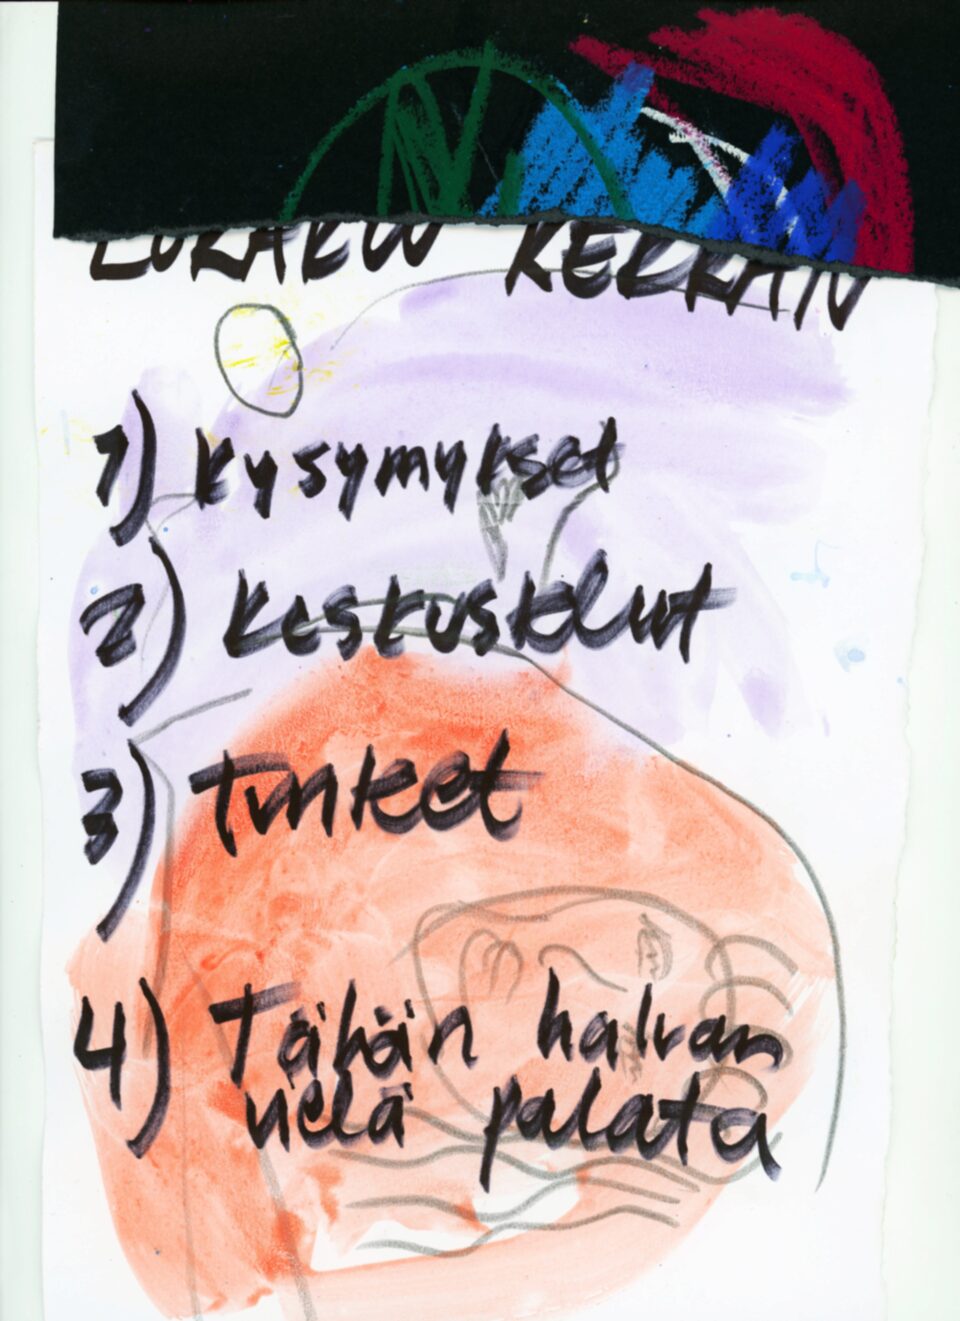 KERRAN
1) kysymykset
2) keskustelut
3) Tunteet
4) Tähän haluan
vielä palata